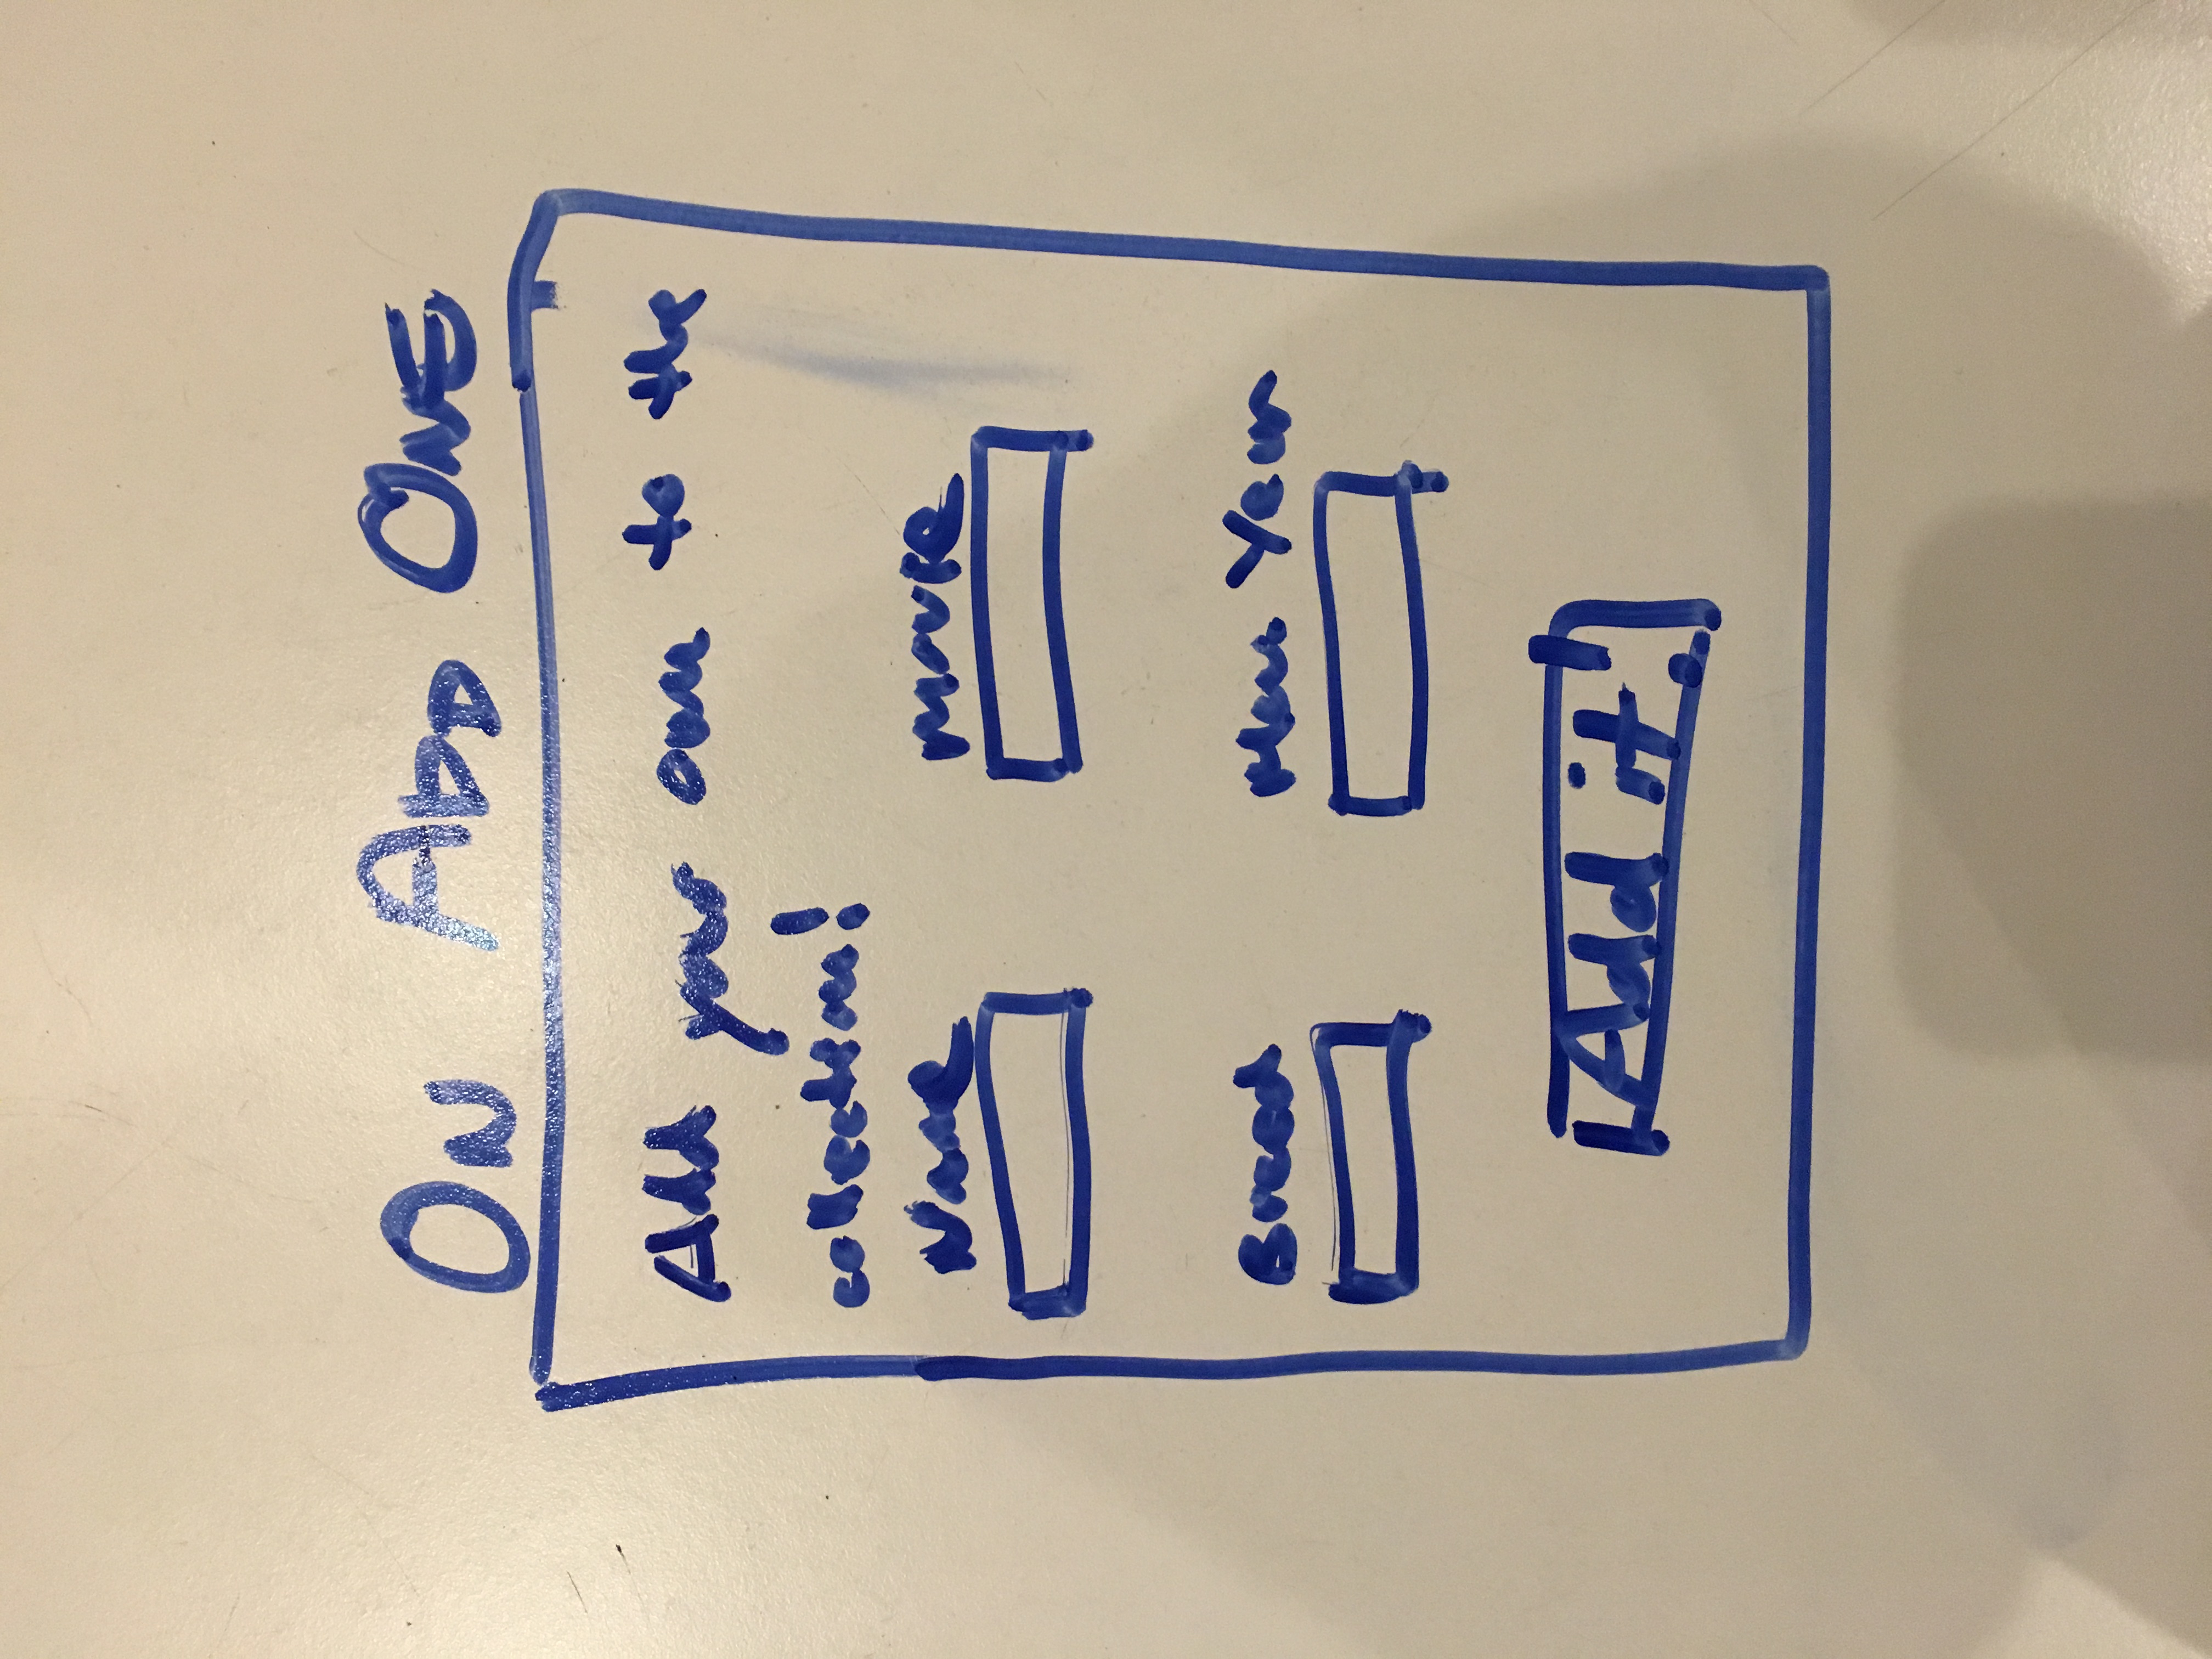 ON ADD ONE
Add your own to the
collection!
Name
Movie
Breed
Year
Add it!